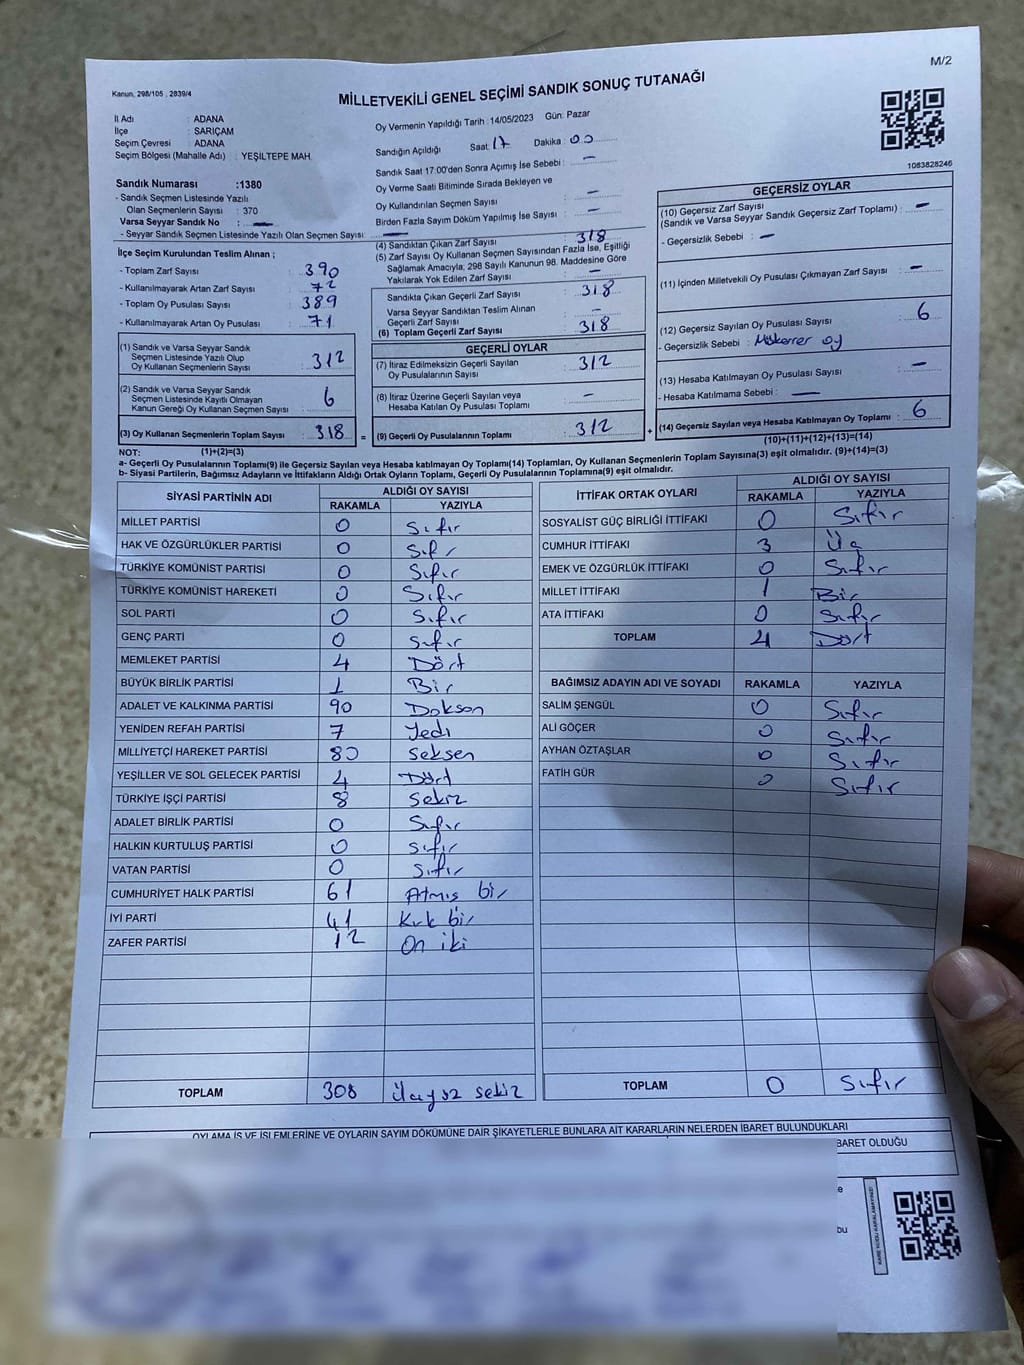 M/2
Kanun, 298/105 , 2839/4
MİLLETVEKİLİ GENEL SEÇİMİ SANDIK SONUÇ TUTANAĞI
İl Adı : ADANA
İlçe : SARIÇAM
Seçim Çevresi : ADANA
Seçim Bölgesi (Mahalle Adı) : YEŞİLTEPE MAH.
Sandık Numarası :1380
- Sandık Seçmen Listesinde Yazılı
Olan Seçmenlerin Sayısı : 370
Varsa Seyyar Sandık No : —
- Seyyar Sandık Seçmen Listesinde Yazılı Olan Seçmen Sayısı: —
Oy Vermenin Yapıldığı Tarih : 14/05/2023 Gün: Pazar
Sandığın Açıldığı Saat : 17 Dakika : 00
Sandık Saat 17:00'den Sonra Açımış İse Sebebi : —
Oy Verme Saati Bitiminde Sırada Bekleyen ve
Oy Kullandırılan Seçmen Sayısı : —
Birden Fazla Sayım Döküm Yapılmış İse Sayısı : —
1083828246
İlçe Seçim Kurulundan Teslim Alınan ;
- Toplam Zarf Sayısı : 390
- Kullanılmayarak Artan Zarf Sayısı : 72
- Toplam Oy Pusulası Sayısı : 389
- Kullanılmayarak Artan Oy Pusulası : 71
(1) Sandık ve Varsa Seyyar Sandık
Seçmen Listesinde Yazılı Olup
Oy Kullanan Seçmenlerin Sayısı : 312
(2) Sandık ve Varsa Seyyar Sandık
Seçmen Listesinde Kayıtlı Olmayan
Kanun Gereği Oy Kullanan Seçmen Sayısı : 6
(3) Oy Kullanan Seçmenlerin Toplam Sayısı : 318 =
(4) Sandıktan Çıkan Zarf Sayısı : 318
(5) Zarf Sayısı Oy Kullanan Seçmen Sayısından Fazla İse, Eşitliği
Sağlamak Amacıyla, 298 Sayılı Kanunun 98. Maddesine Göre
Yakılarak Yok Edilen Zarf Sayısı : —
Sandıkta Çıkan Geçerli Zarf Sayısı : 318
Varsa Seyyar Sandıktan Teslim Alınan
Geçerli Zarf Sayısı : —
(6) Toplam Geçerli Zarf Sayısı : 318
GEÇERLİ OYLAR
(7) İtiraz Edilmeksizin Geçerli Sayılan
Oy Pusulalarının Sayısı : 312
(8) İtiraz Üzerine Geçerli Sayılan veya
Hesaba Katılan Oy Pusulası Toplamı : —
(9) Geçerli Oy Pusulalarının Toplamı : 312 +
GEÇERSİZ OYLAR
(10) Geçersiz Zarf Sayısı : —
(Sandık ve Varsa Seyyar Sandık Geçersiz Zarf Toplamı)
- Geçersizlik Sebebi : —
(11) İçinden Milletvekili Oy Pusulası Çıkmayan Zarf Sayısı : —
(12) Geçersiz Sayılan Oy Pusulası Sayısı : 6
- Geçersizlik Sebebi : Mükerrer oy
(13) Hesaba Katılmayan Oy Pusulası Sayısı : —
- Hesaba Katılmama Sebebi : —
(14) Geçersiz Sayılan veya Hesaba Katılmayan Oy Toplamı : 6
NOT: (1)+(2)=(3) (10)+(11)+(12)+(13)=(14)
a- Geçerli Oy Pusulalarının Toplamı(9) ile Geçersiz Sayılan veya Hesaba katılmayan Oy Toplamı(14) Toplamları, Oy Kullanan Seçmenlerin Toplam Sayısına(3) eşit olmalıdır. (9)+(14)=(3)
b- Siyasi Partilerin, Bağımsız Adayların ve İttifakların Aldığı Ortak Oyların Toplamı, Geçerli Oy Pusulalarının Toplamına(9) eşit olmalıdır.
SİYASİ PARTİNİN ADI ALDIĞI OY SAYISI
RAKAMLA YAZIYLA
MİLLET PARTİSİ 0 Sıfır
HAK VE ÖZGÜRLÜKLER PARTİSİ 0 Sıfır
TÜRKİYE KOMÜNİST PARTİSİ 0 Sıfır
TÜRKİYE KOMÜNİST HAREKETİ 0 Sıfır
SOL PARTİ 0 Sıfır
GENÇ PARTİ 0 Sıfır
MEMLEKET PARTİSİ 4 Dört
BÜYÜK BİRLİK PARTİSİ 1 Bir
ADALET VE KALKINMA PARTİSİ 90 Doksan
YENİDEN REFAH PARTİSİ 7 Yedi
MİLLİYETÇİ HAREKET PARTİSİ 80 Seksen
YEŞİLLER VE SOL GELECEK PARTİSİ 4 Dört
TÜRKİYE İŞÇİ PARTİSİ 8 Sekiz
ADALET BİRLİK PARTİSİ 0 Sıfır
HALKIN KURTULUŞ PARTİSİ 0 Sıfır
VATAN PARTİSİ 0 Sıfır
CUMHURİYET HALK PARTİSİ 61 Atmış bir
İYİ PARTİ 41 Kırk bir
ZAFER PARTİSİ 12 On iki
TOPLAM 308 Üçyüz sekiz
İTTİFAK ORTAK OYLARI ALDIĞI OY SAYISI
RAKAMLA YAZIYLA
SOSYALİST GÜÇ BİRLİĞİ İTTİFAKI 0 Sıfır
CUMHUR İTTİFAKI 3 Üç
EMEK VE ÖZGÜRLÜK İTTİFAKI 0 Sıfır
MİLLET İTTİFAKI 1 Bir
ATA İTTİFAKI 0 Sıfır
TOPLAM 4 Dört
BAĞIMSIZ ADAYIN ADI VE SOYADI RAKAMLA YAZIYLA
SALİM ŞENGÜL 0 Sıfır
ALİ GÖÇER 0 Sıfır
AYHAN ÖZTAŞLAR 0 Sıfır
FATİH GÜR 0 Sıfır
TOPLAM 0 Sıfır
OYLAMA İŞ VE İŞLEMLERİNE VE OYLARIN SAYIM DÖKÜMÜNE DAİR ŞİKAYETLERLE BUNLARA AİT KARARLARIN NELERDEN İBARET BULUNDUKLARI
BARET OLDUĞU
e
bu
KARE KODU KARALAMAYINIZ!